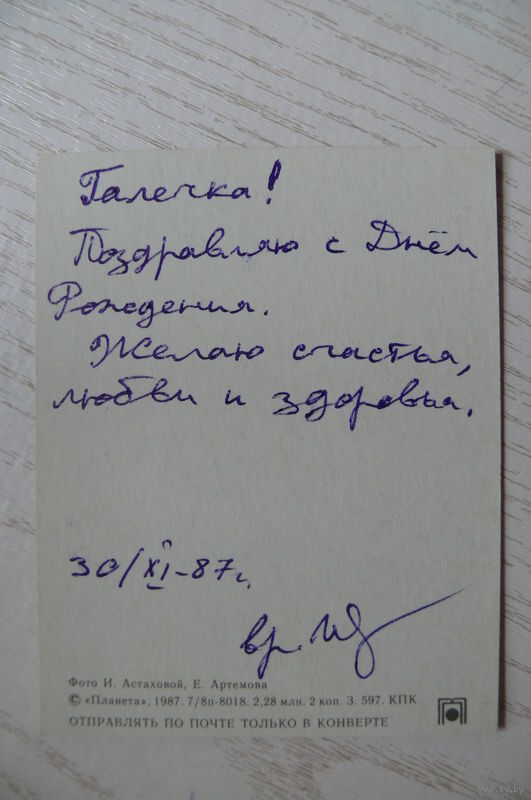 Галечка!
Поздравляю с Днём
Рождения.
Желаю счастья,
любви и здоровья.
30/XI-87г.
вр.
Фото И. Астаховой, Е. Артемова
© «Планета», 1987. 7/8п-8018. 2,28 млн. 2 коп. З. 597. КПК
ОТПРАВЛЯТЬ ПО ПОЧТЕ ТОЛЬКО В КОНВЕРТЕ